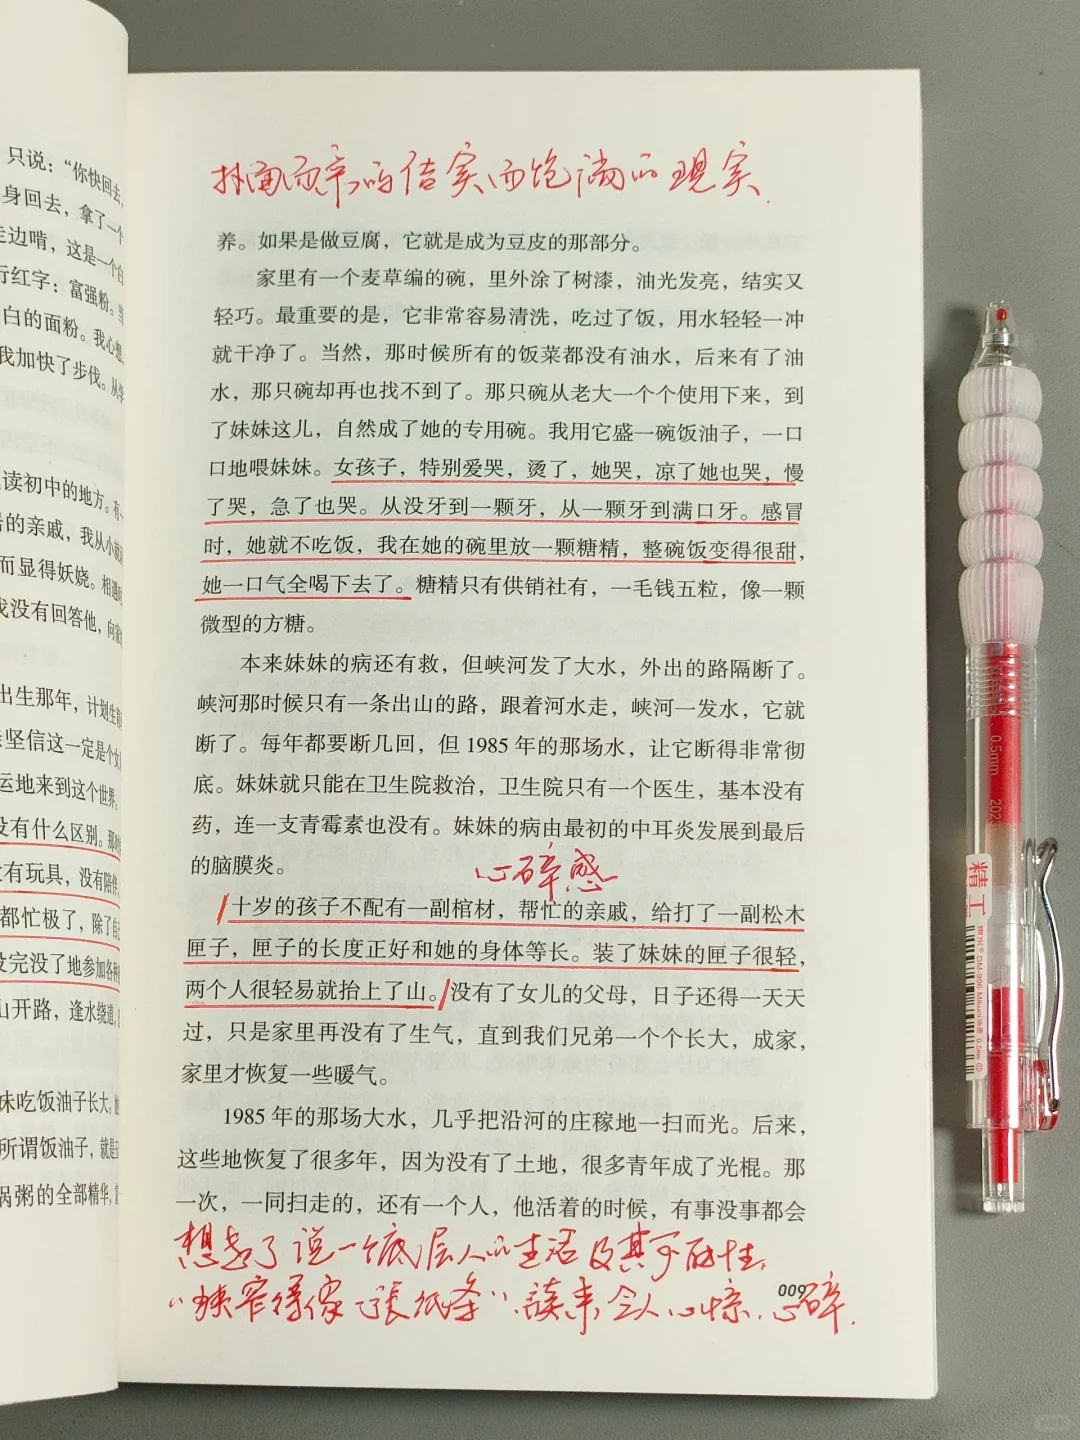 只说：“你快回去，
身回去，拿了一个
走边啃，这是一个白
行红字：富强粉。当
白的面粉。我心想，
我加快了步伐。从学
读初中的地方。有一
的亲戚，我从小就
而显得妖娆。相遇
我没有回答他，向家
出生那年，计划生
坚信这一定是个女
运地来到这个世界。
没有什么区别。那时
没有玩具，没有陪伴，
都忙极了，除了自
没完没了地参加各种
山开路，逢水绕道，
妹吃饭油子长大。
所谓饭油子，就是
锅粥的全部精华，
扑面而来的结实而饱满的现实.
养。如果是做豆腐，它就是成为豆皮的那部分。
家里有一个麦草编的碗，里外涂了树漆，油光发亮，结实又
轻巧。最重要的是，它非常容易清洗，吃过了饭，用水轻轻一冲
就干净了。当然，那时候所有的饭菜都没有油水，后来有了油
水，那只碗却再也找不到了。那只碗从老大一个个使用下来，到
了妹妹这儿，自然成了她的专用碗。我用它盛一碗饭油子，一口
口地喂妹妹。女孩子，特别爱哭，烫了，她哭，凉了她也哭，慢
了哭，急了也哭。从没牙到一颗牙，从一颗牙到满口牙。感冒
时，她就不吃饭，我在她的碗里放一颗糖精，整碗饭变得很甜，
她一口气全喝下去了。糖精只有供销社有，一毛钱五粒，像一颗
微型的方糖。
本来妹妹的病还有救，但峡河发了大水，外出的路隔断了。
峡河那时候只有一条出山的路，跟着河水走，峡河一发水，它就
断了。每年都要断几回，但 1985 年的那场水，让它断得非常彻
底。妹妹就只能在卫生院救治，卫生院只有一个医生，基本没有
药，连一支青霉素也没有。妹妹的病由最初的中耳炎发展到最后
的脑膜炎。
心碎感
十岁的孩子不配有一副棺材，帮忙的亲戚，给打了一副松木
匣子，匣子的长度正好和她的身体等长。装了妹妹的匣子很轻，
两个人很轻易就抬上了山。没有了女儿的父母，日子还得一天天
过，只是家里再没有了生气，直到我们兄弟一个个长大，成家，
家里才恢复一些暖气。
1985 年的那场大水，几乎把沿河的庄稼地一扫而光。后来，
这些地恢复了很多年，因为没有了土地，很多青年成了光棍。那
一次，一同扫走的，还有一个人，他活着的时候，有事没事都会
想起了说一个底层人的生活及其可能性，
“狭窄得像一张纸条”，读来令人心惊，心碎.
009
精工
0.5mm